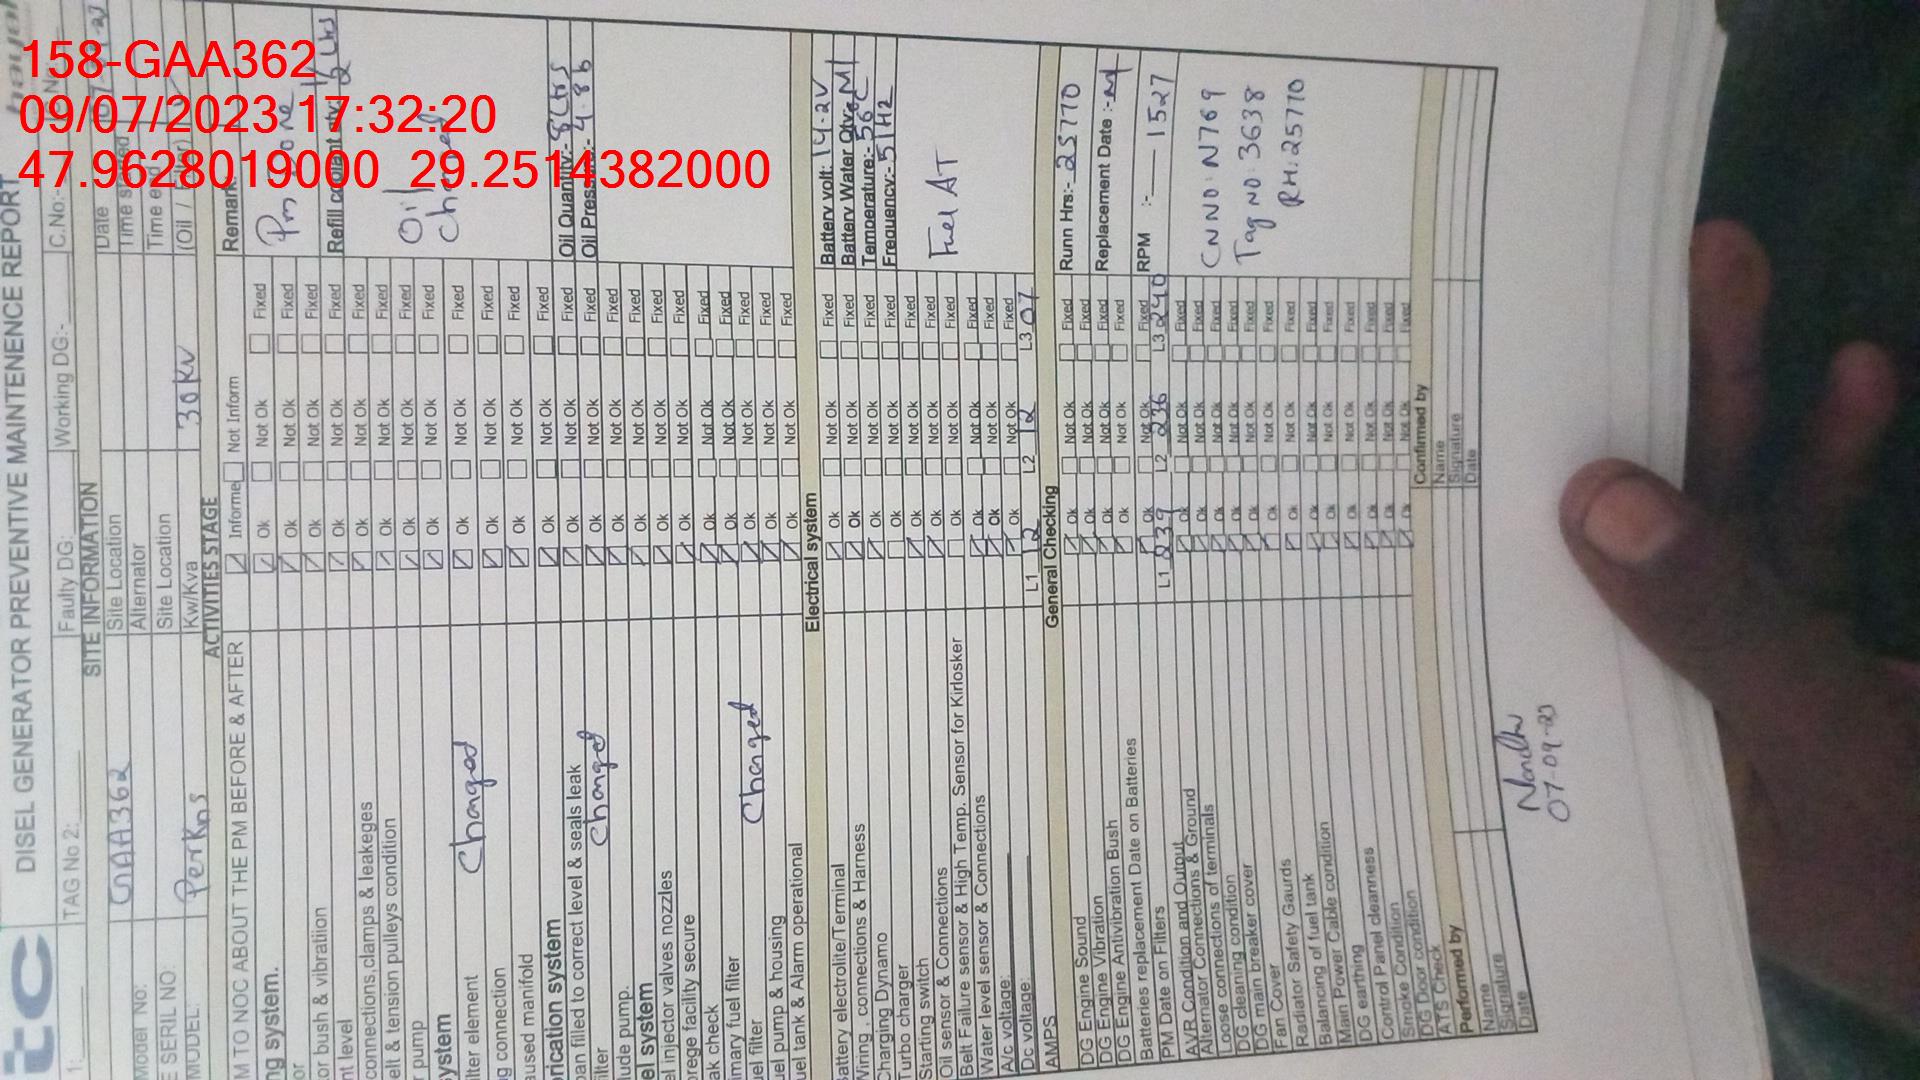 158-GAA362
09/07/2023 17:32:20
47.9628019000 29.2514382000
tc
DISEL GENERATOR PREVENTIVE MAINTENENCE REPORT
1: TAG No 2: Faulty DG: Working DG:- C.No:-
SITE INFORMATION
Model No: GAA362 Site Location Date
Alternator
E SERIL NO: Site Location
MODEL: Perkns Kw/Kva 30KV
ACTIVITIES STAGE
M TO NOC ABOUT THE PM BEFORE & AFTER Informe Not Inform Remark
ng system. Ok Not Ok Fixed Pm done
or Ok Not Ok Fixed
or bush & vibratiion Ok Not Ok Fixed
nt level Ok Not Ok Fixed
connections,clamps & leakeges Ok Not Ok Fixed
elt & tension pulleys condition Ok Not Ok Fixed
r pump Ok Not Ok Fixed Oil
ystem Ok Not Ok Fixed Changed
ilter element Changed Ok Not Ok Fixed
g connection Ok Not Ok Fixed
aused manifold Ok Not Ok Fixed
rication system Ok Not Ok Fixed
pan filled to correct level & seals leak Ok Not Ok Fixed Oil Quantity:- 8Ltrs
ilter Changed Ok Not Ok Fixed Oil Pressure:- 4.8b
lude pump. Ok Not Ok Fixed
el system Ok Not Ok Fixed
el injector valves nozzles Ok Not Ok Fixed
orege facility secure Ok Not Ok Fixed
ak check Ok Not Ok Fixed
imary fuel filter Ok Not Ok Fixed
uel filter Changed Ok Not Ok Fixed
uel pump & housing Ok Not Ok Fixed
uel tank & Alarm operational Ok Not Ok Fixed
Electrical system
attery electrolite/Terminal Ok Not Ok Fixed Battery volt: 14.2V
Wiring , connections & Harness Ok Not Ok Fixed Battery Water Qty
Charging Dynamo Ok Not Ok Fixed Temperature:- 56c
Turbo charger Ok Not Ok Fixed Frequency:- 51Hz
Starting switch Ok Not Ok Fixed
Oil sensor & Connections Ok Not Ok Fixed Fuel AT
Belt Failure sensor & High Temp. Sensor for Kirlosker Ok Not Ok Fixed
Water level sensor & Connections Ok Not Ok Fixed
A/c voltage: Ok Not Ok Fixed
Dc voltage: L1 12 L2 12 L3 07
AMPS General Checking
DG Engine Sound Ok Not Ok Fixed Runn Hrs:- 25770
DG Engine Vibration Ok Not Ok Fixed
DG Engine Antivibration Bush Ok Not Ok Fixed Replacement Date :-
Batteries replacement Date on Batteries Ok Not Ok Fixed RPM :- 1527
PM Date on Filters L1 239 L2 236 L3 240
AVR Condition and Output Ok Not Ok Fixed
Alternator Connections & Ground Ok Not Ok Fixed
Loose connections of terminals Ok Not Ok Fixed CNNO: N769
DG cleaning condition Ok Not Ok Fixed
DG main breaker cover Ok Not Ok Fixed Tag NO: 3638
Fan Cover Ok Not Ok Fixed
Radiator Safety Gaurds Ok Not Ok Fixed RH: 25770
Balancing of fuel tank Ok Not Ok Fixed
Main Power Cable condition Ok Not Ok Fixed
DG earthing Ok Not Ok Fixed
Control Panel cleanness Ok Not Ok Fixed
Smoke Condition Ok Not Ok Fixed
DG Door condition Ok Not Ok Fixed
ATS Check
Performed by Confirmed by
Name Name
Signature Signature
Date Date
07-09-23